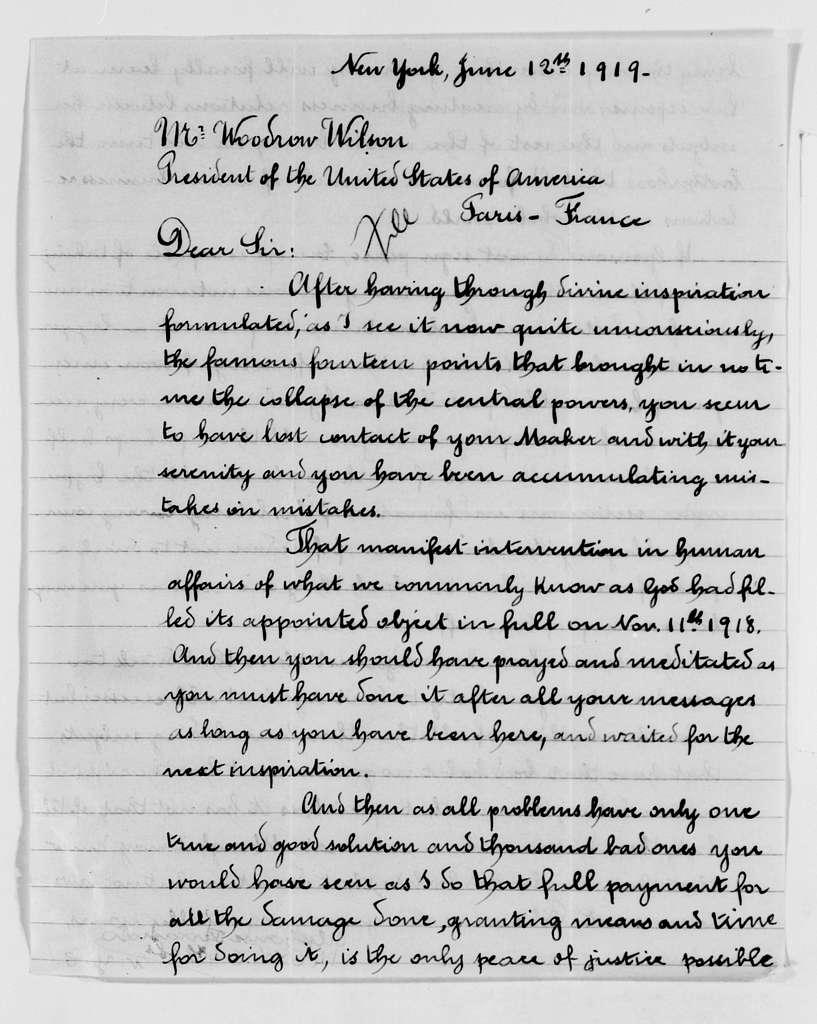 New York, June 12th 1919-
Mr. Woodrow Wilson
President of the United States of America
Paris - France
Dear Sir:
After having through divine inspiration
formulated, as I see it now quite unconsciously,
the famous fourteen points that brought in no ti-
me the collapse of the central powers, you seem
to have lost contact of your Maker and with it your
serenity and you have been accumulating mis-
takes on mistakes.
That manifest intervention in human
affairs of what we commonly know as God had fil-
led its appointed object in full on Nov. 11th 1918.
And then you should have prayed and meditated as
you must have done it after all your messages
as long as you have been here, and waited for the
next inspiration.
And then as all problems have only one
true and good solution and thousand bad ones you
would have seen as I do that full payment for
all the damage done, granting means and time
for doing it, is the only peace of justice possible